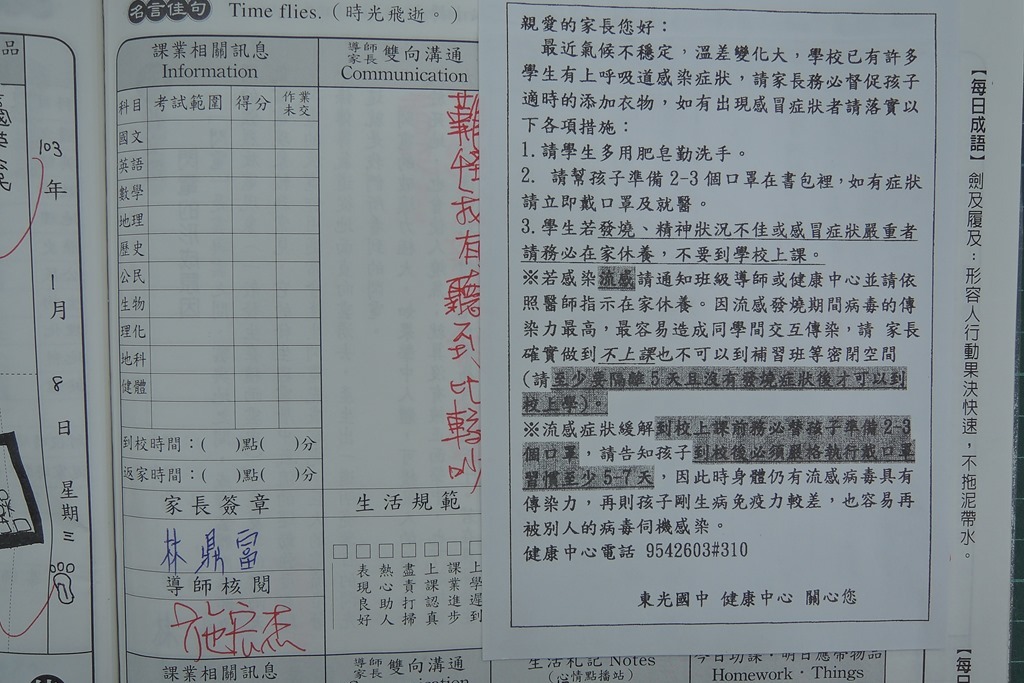 品
103
年
1
月
8
日
星期三
名言佳句 Time flies.(時光飛逝。)
課業相關訊息
Information
導師
家長
雙向溝通
Communication
科目 考試範圍 得分 作業未交
國文
英語
數學
地理
歷史
公民
生物
理化
地科
健體
到校時間：( )點( )分
返家時間：( )點( )分
家長簽章
林鼎富
導師核閱
施宏杰
難怪我有聽到比較吵
生活規範
□ □ □ □ □ □
表現良好
熱心助人
盡責打掃
上課認真
課業進步
上學遲到
課業相關訊息
導師
家長
雙向溝通
生活札記 Notes
(心情點播站)
今日功課·明日應帶物品
Homework · Things
親愛的家長您好：
最近氣候不穩定，溫差變化大，學校已有許多
學生有上呼吸道感染症狀，請家長務必督促孩子
適時的添加衣物，如有出現感冒症狀者請落實以
下各項措施：
1.請學生多用肥皂勤洗手。
2. 請幫孩子準備2-3個口罩在書包裡，如有症狀
請立即戴口罩及就醫。
3.學生若發燒、精神狀況不佳或感冒症狀嚴重者
請務必在家休養，不要到學校上課。
※若感染流感請通知班級導師或健康中心並請依
照醫師指示在家休養。因流感發燒期間病毒的傳
染力最高，最容易造成同學間交互傳染，請 家長
確實做到不上課也不可以到補習班等密閉空間
(請至少要隔離5天且沒有發燒症狀後才可以到
校上學)。
※流感症狀緩解到校上課前務必替孩子準備2-3
個口罩，請告知孩子到校後必須嚴格執行戴口罩
習慣至少5-7天，因此時身體仍有流感病毒具有
傳染力，再則孩子剛生病免疫力較差，也容易再
被別人的病毒伺機感染。
健康中心電話 9542603#310
東光國中 健康中心 關心您
【每日成語】劍及履及：形容人行動果決快速，不拖泥帶水。
【每日